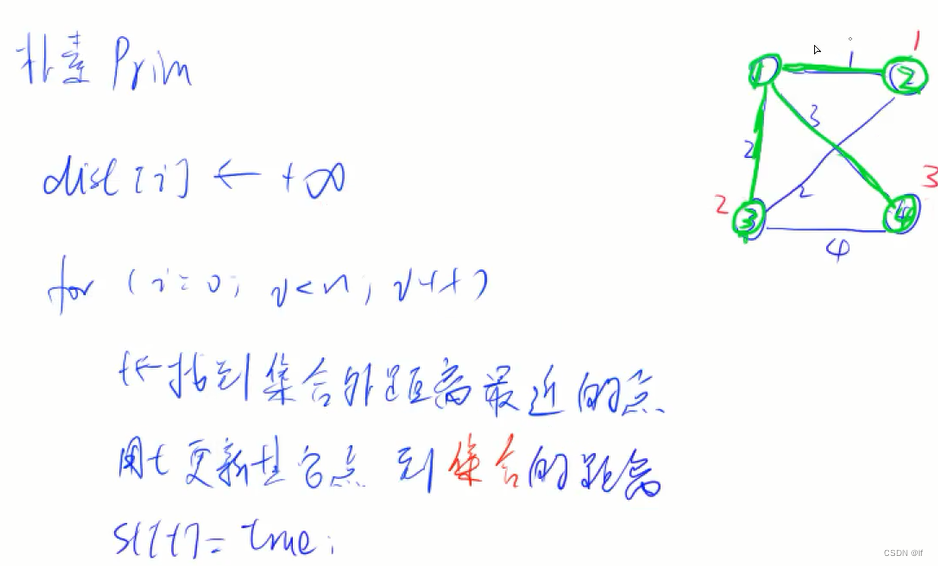 朴素 Prim
dist[i] ← +∞
for (i=0; i<n; i++)
t←找到集合外距离最近的点
用t更新其它点到集合的距离
st[t]=true;
1
1
1
2
3
2
2
3
2
3
4
4
CSDN @lf